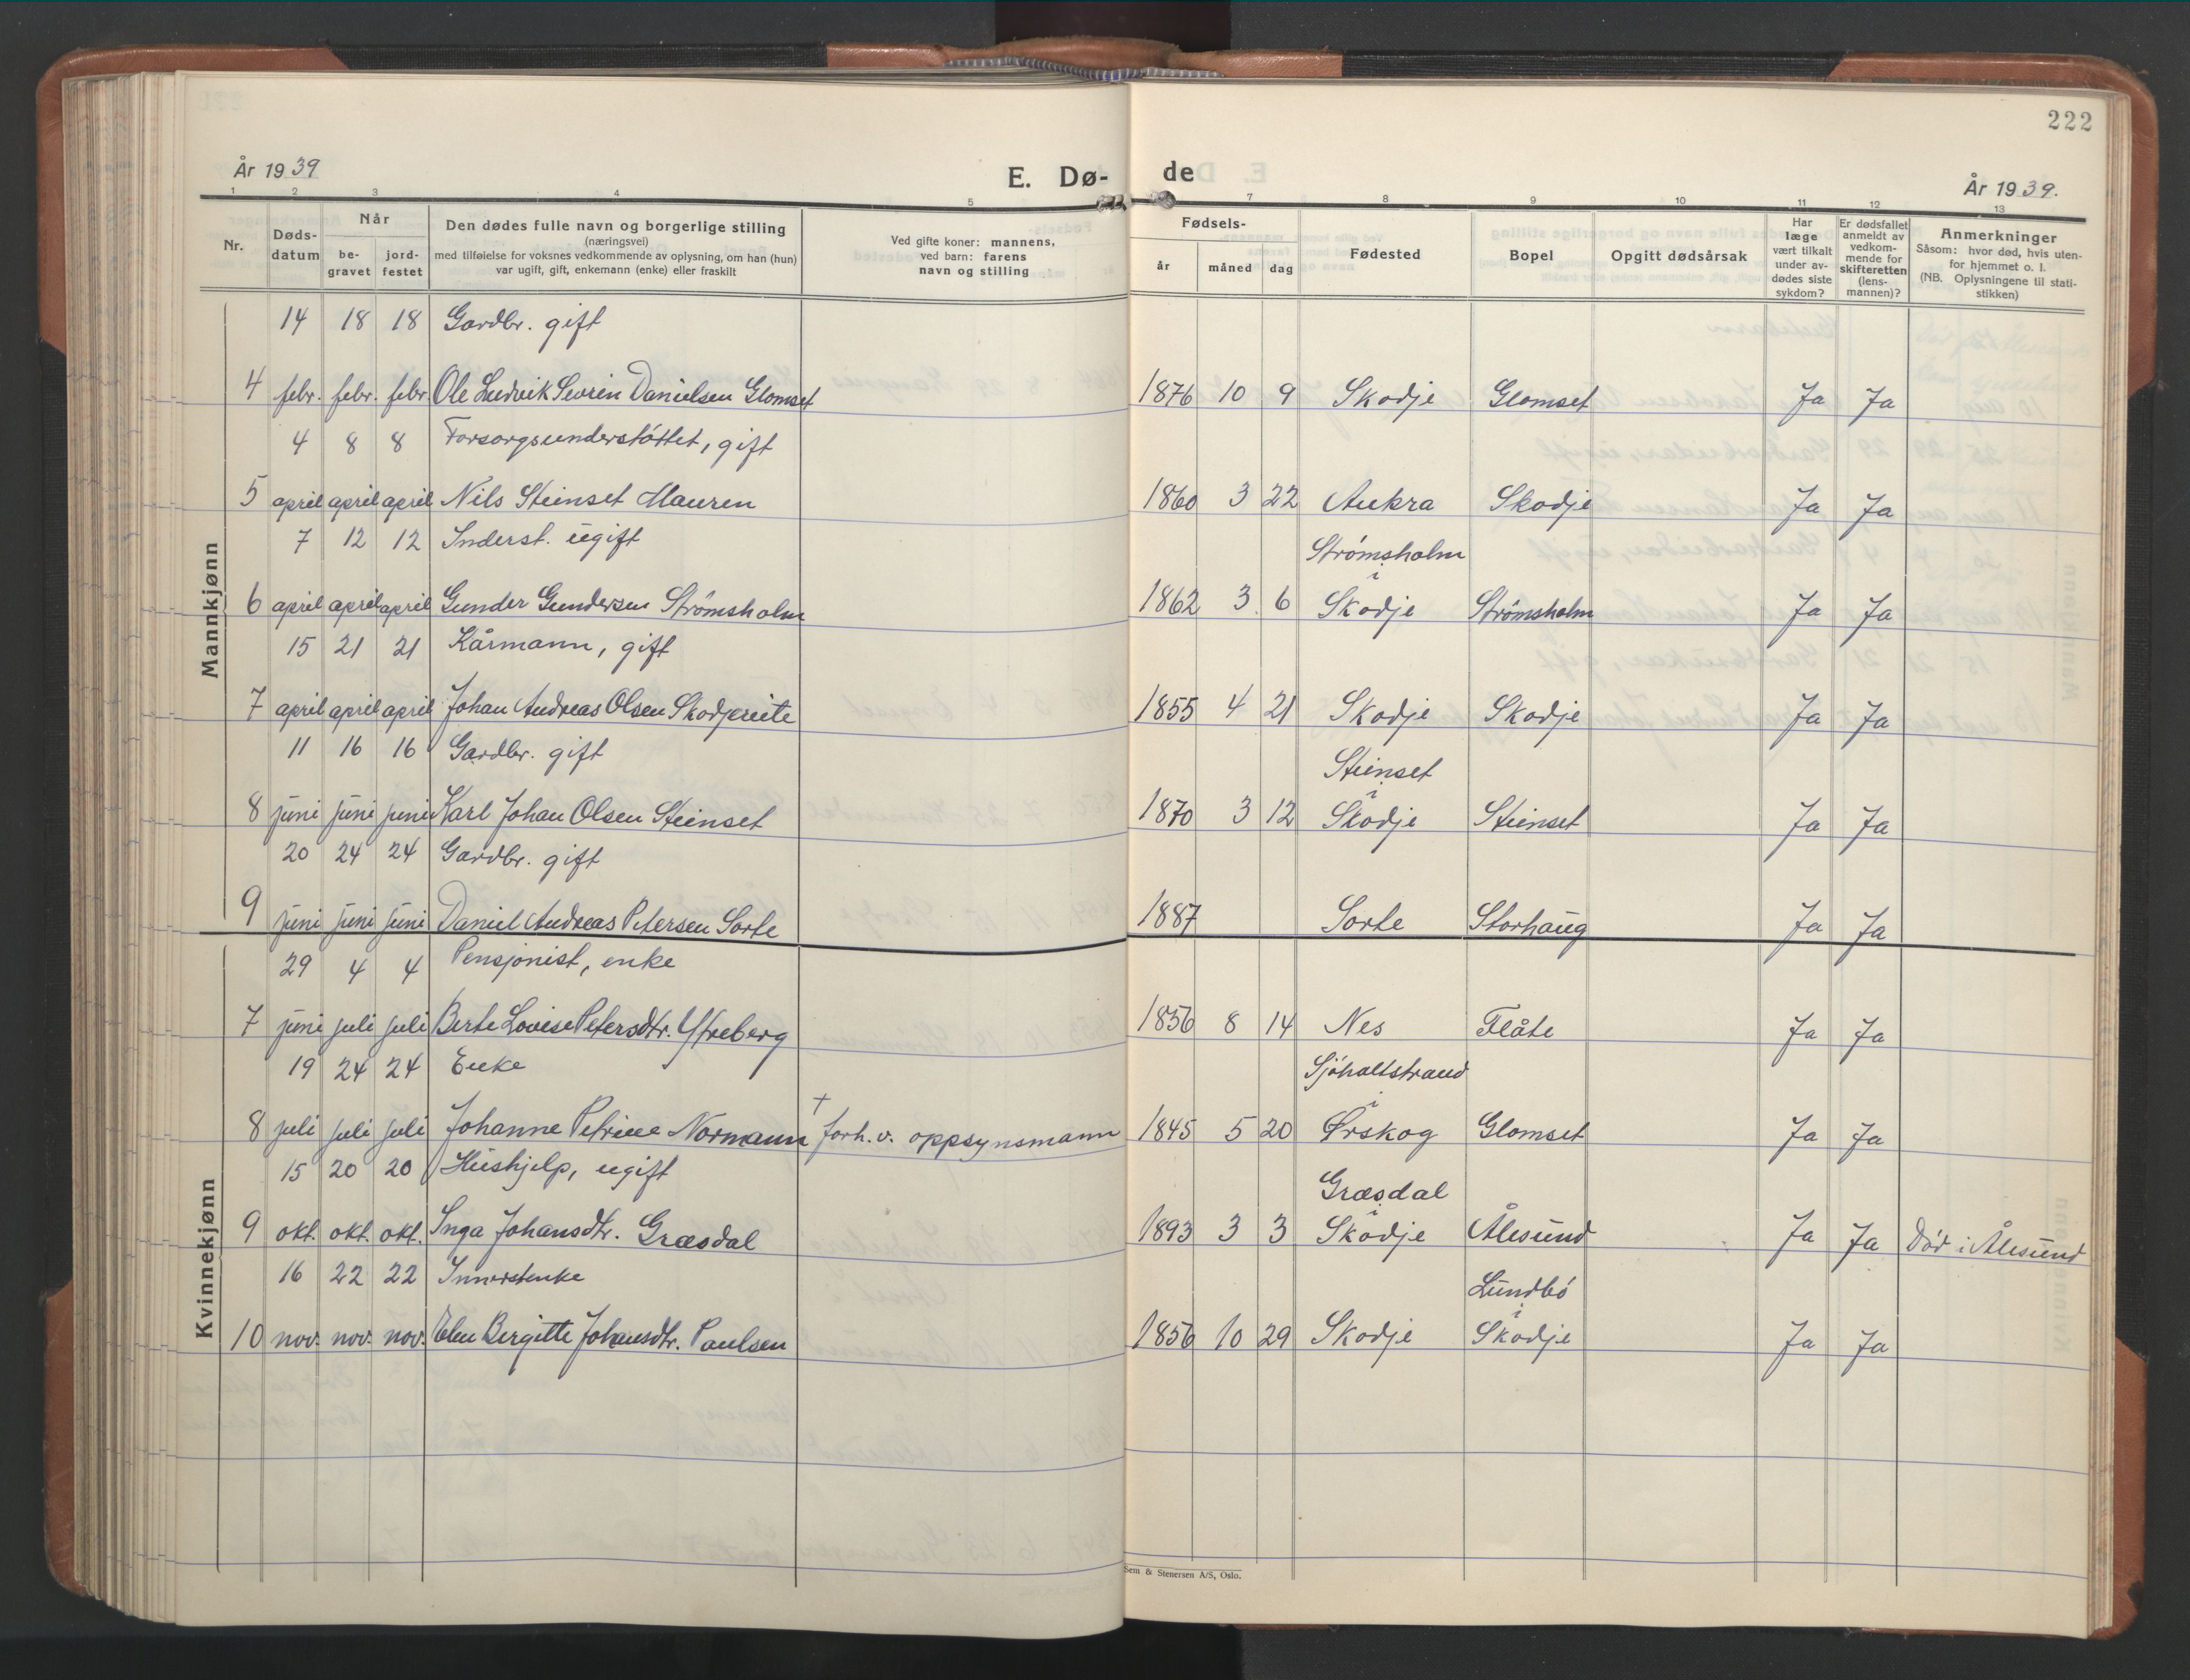 222
År 1939 E. Dø- de År 1939.
1 2 3 4 5 7 8 9 10 11 12 13
Nr. Døds-datum Når be-gravet jord-festet Den dødes fulle navn og borgerlige stilling (næringsvei) med tilføielse for voksnes vedkommende av oplysning, om han (hun) var ugift, gift, enkemann (enke) eller fraskilt Ved gifte koner: mannens, ved barn: farens navn og stilling Fødsels- år måned dag Fødested Bopel Opgitt dødsårsak Har læge vært tilkalt under av-dødes siste sykdom? Er dødsfallet anmeldt av vedkom-mende for skifteretten (lens-mannen)? Anmerkninger Såsom: hvor død, hvis uten-for hjemmet o. l. (NB. Oplysningene til stati-stikken)
Mannkjønn
14 18 18 Gardbr. gift
4 febr. febr. febr. Ole Ludvik Sevrin Danielsen Glomset 1876 10 9 Skodje Glomset Ja Ja
4 8 8 Forsorgsunderstöttet, gift
5 april april april Nils Steinset Mauren 1860 3 22 Aukra Skodje Ja Ja
7 12 12 Inderst. ugift Strömsholm
i
6 april april april Gunder Gundersen Strömsholm 1862 3 6 Skodje Strömsholm Ja Ja
15 21 21 Kårmann, gift
7 april april april Johan Andreas Olsen Skodjereite 1855 4 21 Skodje Skodje Ja Ja
11 16 16 Gardbr. gift Steinset
i
8 juni juni juni Karl Johan Olsen Steinset 1870 3 12 Skodje Steinset Ja Ja
20 24 24 Gardbr. gift
9 juni juni juni Daniel Andreas Petersen Sorte 1887 Sorte Storhaug Ja Ja
Kvinnekjønn
29 4 4 Pensjonist, enke
7 juni juli juli Berte Lovise Petersdtr. Ytreberg 1856 8 14 Nes Flåte Ja Ja
19 24 24 Enke Sjöholtstrand
i
8 juli juli juli Johanne Petrine Normann + forh. v. oppsynsmann 1845 5 20 Ørskog Glomset Ja Ja
15 20 20 Hushjelp, ugift Græsdal
i
9 okt. okt. okt. Inga Johansdtr. Græsdal 1893 3 3 Skodje Ålesund Ja Ja Död i Ålesund
16 22 22 Innerstenke Lundbö
i
10 nov. nov. nov. Elen Bergitte Johansdtr. Paulsen 1856 10 29 Skodje Skodje Ja Ja
Sem & Stenersen A/S, Oslo.